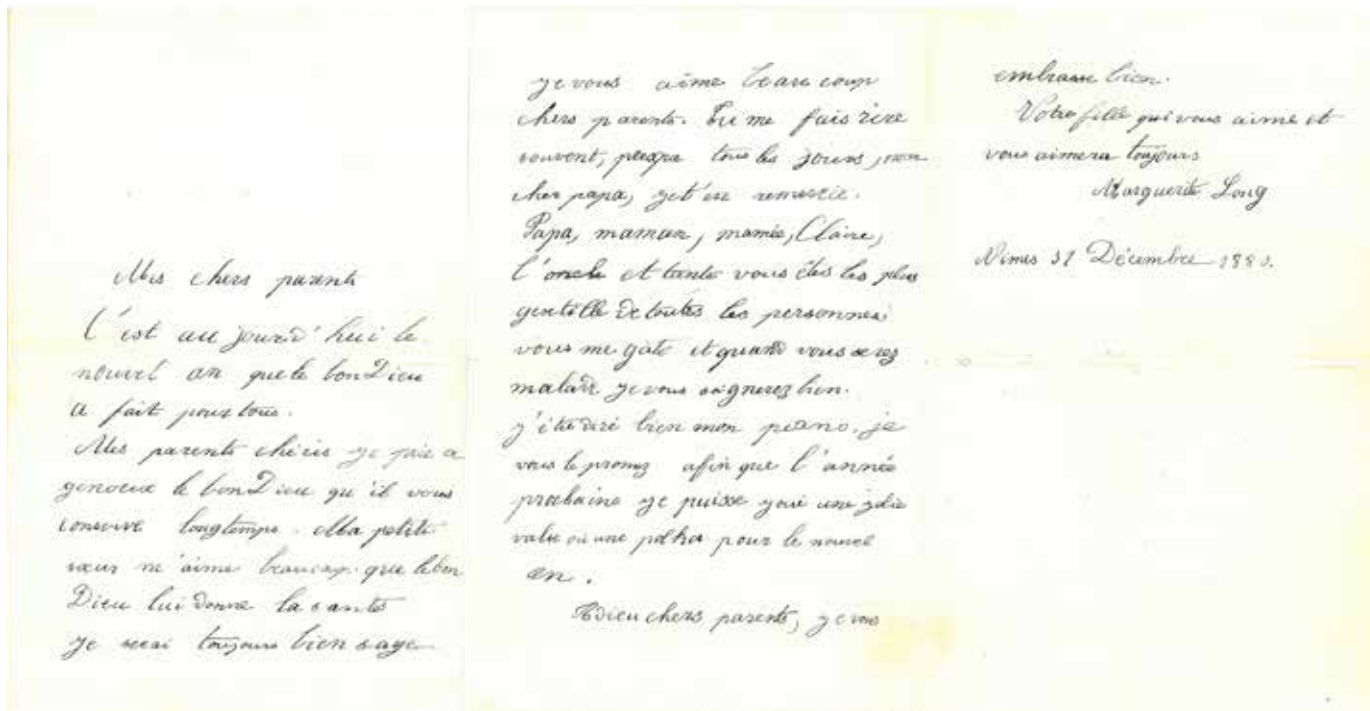 Mes chers parents
C'est au jourd'hui le
nouvel an que le bon Dieu
a fait pour tous.
Mes parents chéris je prie a
genoux le bon Dieu qu'il vous
conserve longtemps. Ma petite
sœur m'aime beaucoup que le bon
Dieu lui donne la santé
je serai toujours bien sage
je vous aime beau coup
chers parents. Tu me fais rire
souvent, presque tous les jours, mon
cher papa, je t'en remercie.
Papa, maman, mamée, Claire,
l'oncle et tante vous êtes les plus
gentille de toutes les personnes
vous me gate et quand vous serez
malade je vous soignerez bien.
j'étudiré bien mon piano, je
vous le promez afin que l'année
prochaine je puisse joué une jolie
valse ou une polka pour le nouvel
an.
Adieu chers parents, je vous
embrasse bien.
Votre fille qui vous aime et
vous aimera toujours
Marguerite Long
Nimes 31 Décembre